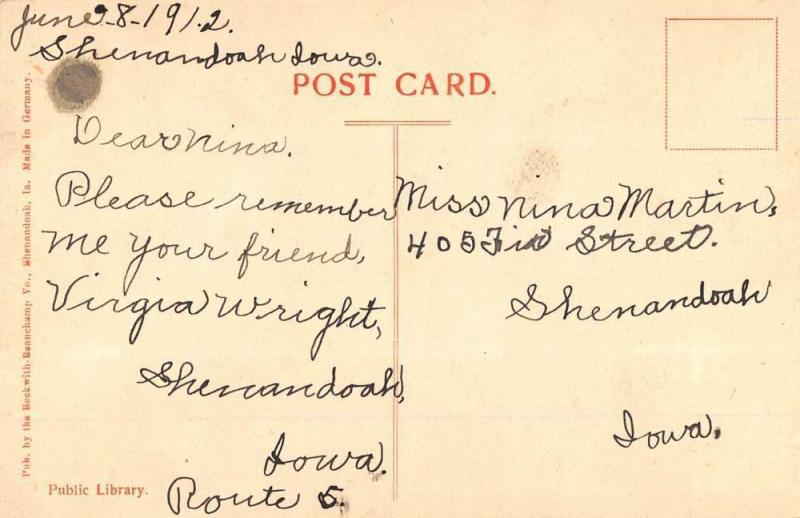 June 28-1912.
Shenandoah Iowa.
POST CARD.
Dear Nina.
Please remember
me your friend,
Virgia Wright,
Shenandoah,
Iowa.
Route 5.
Miss Nina Martin,
405 Street.
Shenandoah
Iowa.
Public Library.
Pub. by the Beckwith-Beauchamp Vo., Shenandoah, Ia. Made in Germany.